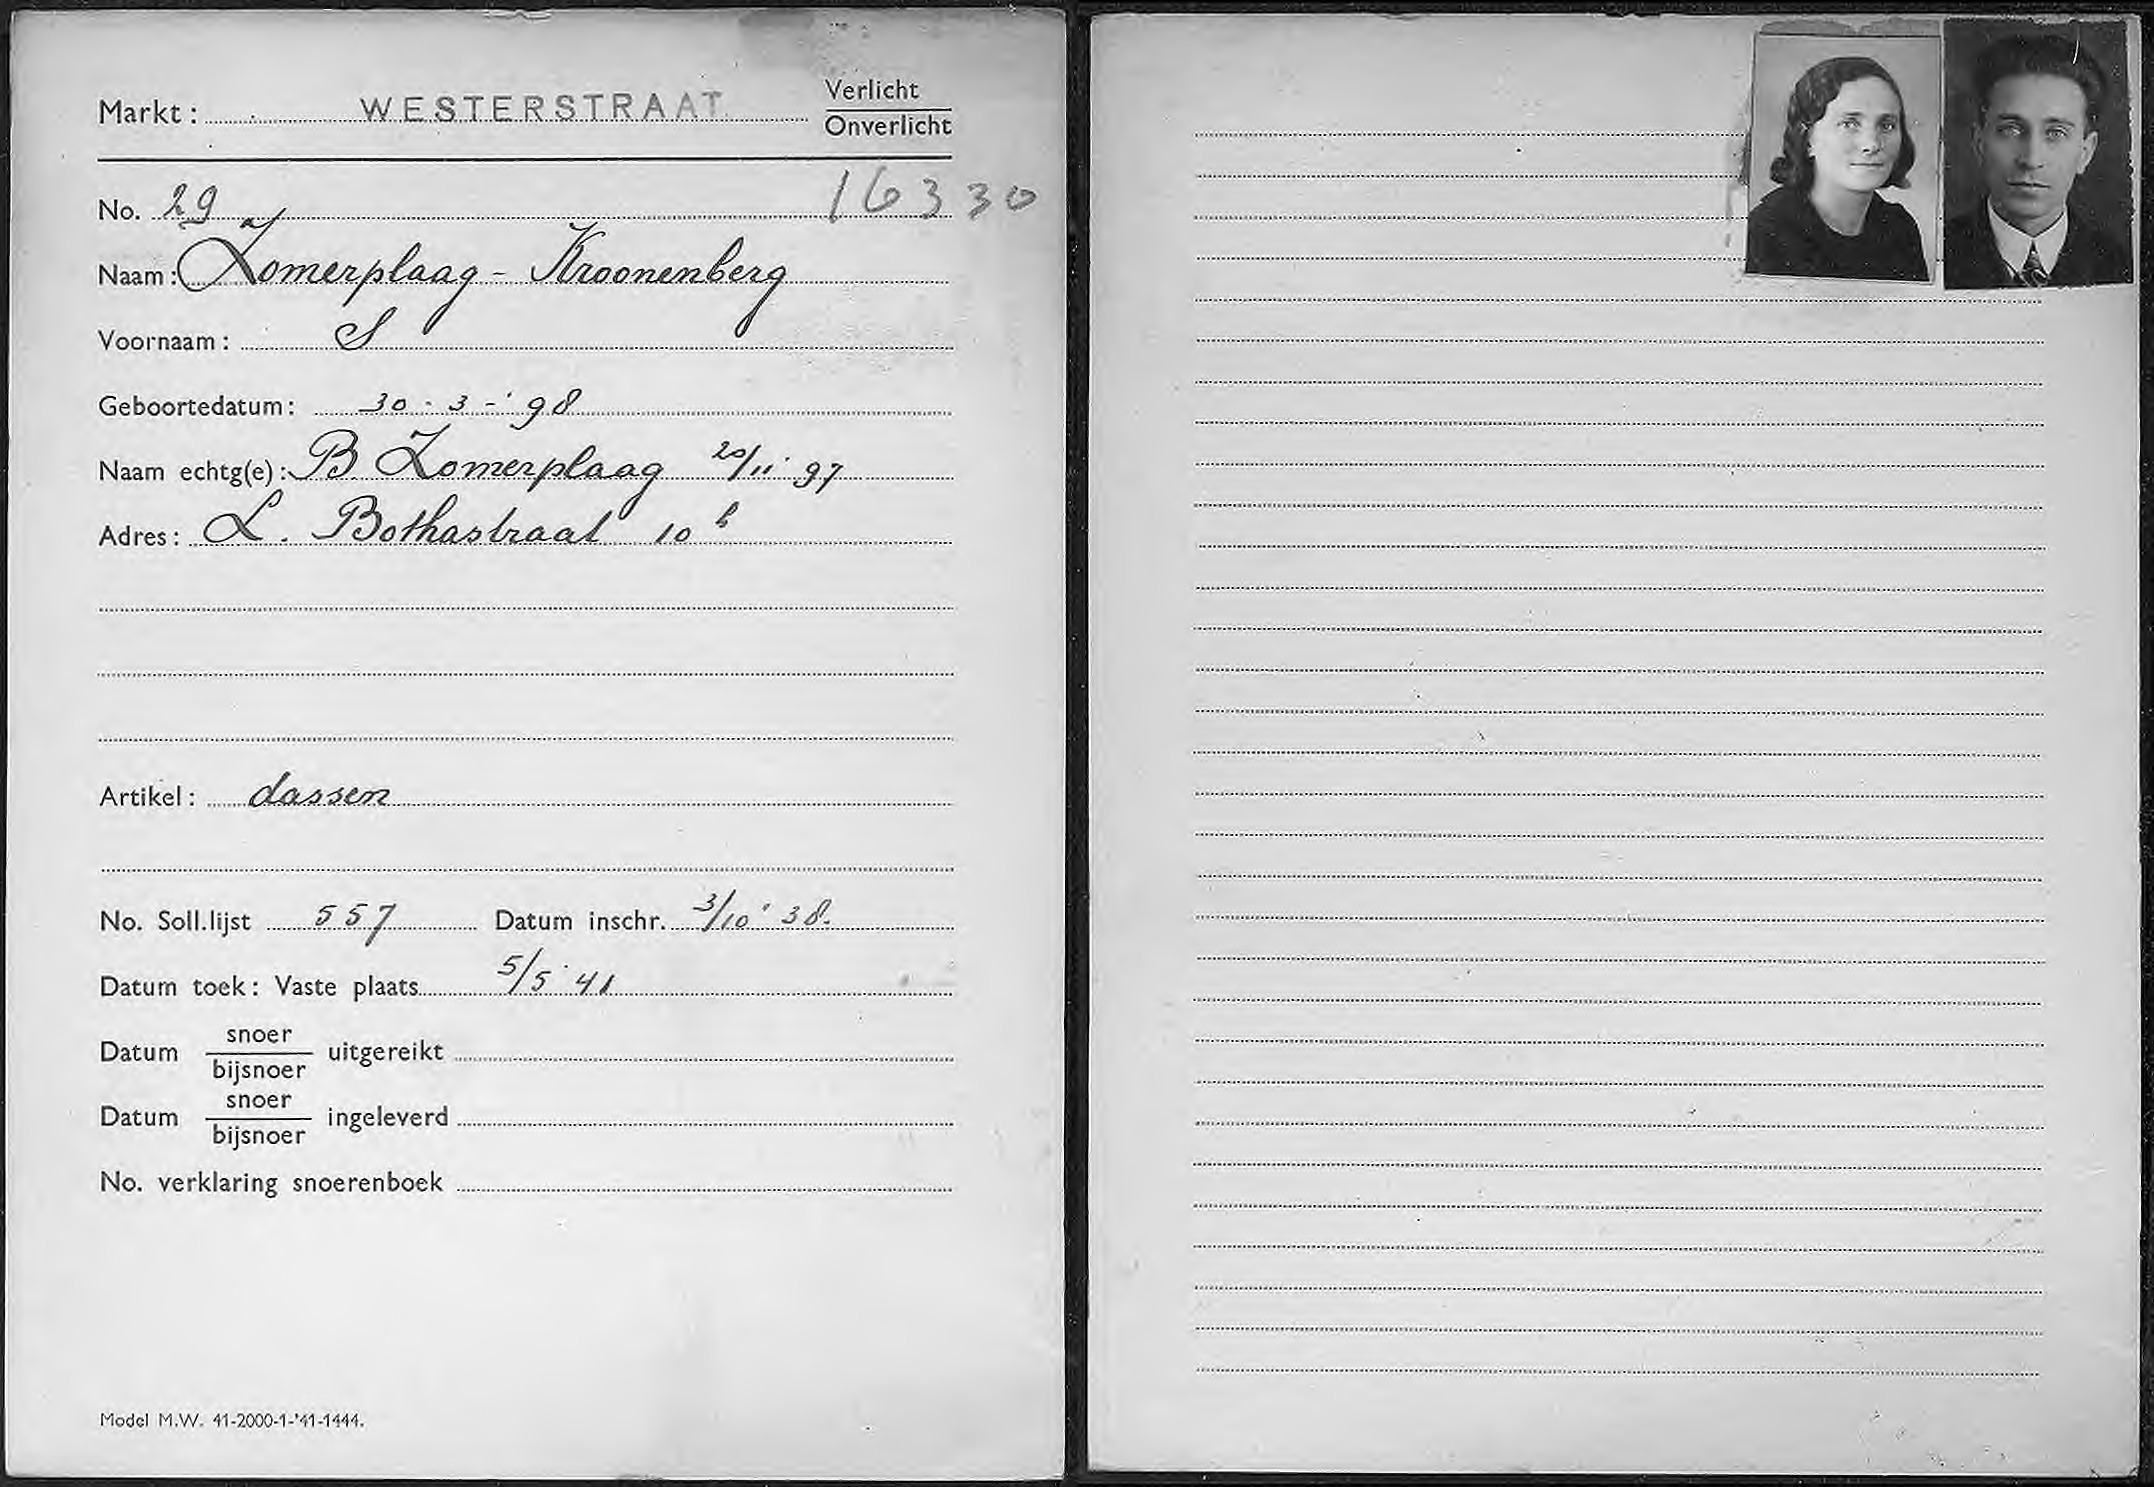 Markt: WESTERSTRAAT Verlicht
Onverlicht
No. 29 a/ 16330
Naam: Zomerplaag - Kroonenberg
Voornaam: S
Geboortedatum: 30 - 3 - '98
Naam echtg(e): B Zomerplaag 20/11 '97
Adres: L. Bothastraat 10 h
Artikel: dassen
No. Soll.lijst 557 Datum inschr. 3/10 '38.
Datum toek: Vaste plaats 5/5 '41
Datum snoer
bijsnoer uitgereikt
Datum snoer
bijsnoer ingeleverd
No. verklaring snoerenboek
Model M.W. 41-2000-1-'41-1444.